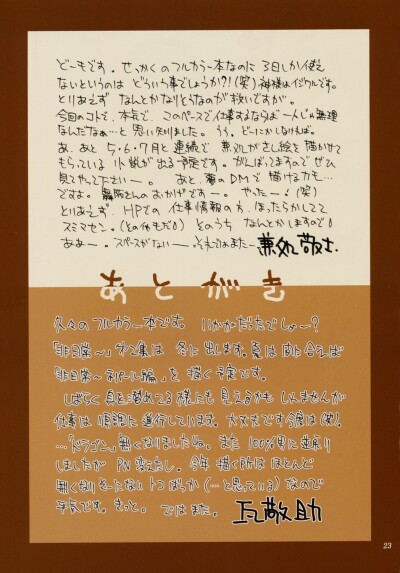 どーもです。せっかくのフルカラー本なのに3日しか使え
ないというのは どういう事でしょうか?!(笑)神様はイジワルです。
とりあえず なんとかなりそうなのが救いですが。
今回のコトで、本気で、このペースで仕事するならば一人じゃ無理
なんだなぁ…と思い知りました。うう。どーにかしなければ。
あ、あと5・6・7月と連続で 兼処がさし絵を描かせて
もらっている小説が出る予定です。がんばってますのでぜひ
見てやって下さいー。あと、夏のDMで描けるかも…
ですよ。さんのおかげですー。やったー!(笑)
とりあえず、HPでの仕事情報の方、ほったらかしてて
スミマセン。(その他もだ)そのうち なんとかしますので
ああー。スペースがないー。それではまたー 兼処敬士.
あとがき
久々のフルカラー本です。いかがだったでしょ〜?
「非日常〜」の総集は 冬に出します。夏は間に合えば
「非日常〜 編」を描く予定です。
しばらく身を潜めてる様にも見えるかもしれませんが
仕事は順調に進行しています。大丈夫です今度は(笑)。
…「ドラゴン」無くなりましたね。また100%男に逆戻り
しましたが PN変えたし。今年 描く所はほとんど
無くなりそーにないトコばっか(…と思っている)なので
平気です。きっと。ではまた。 瓦敬助
23